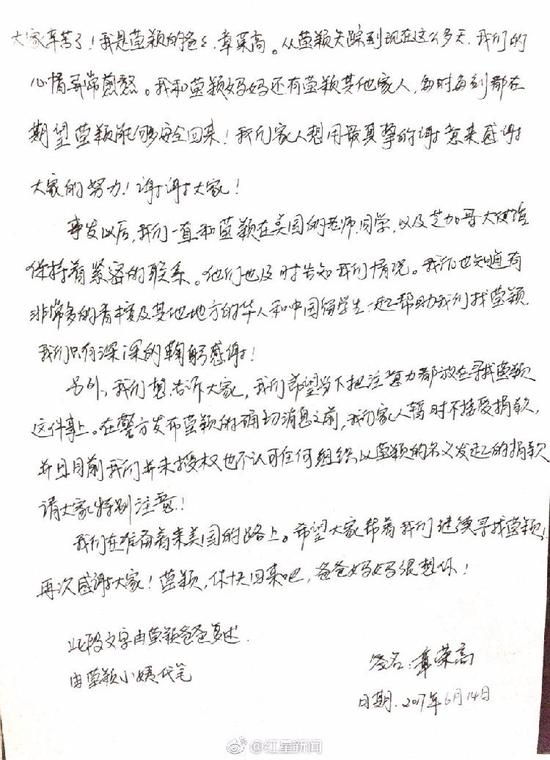 大家辛苦了！我是莹颖的爸爸，章荣高。从莹颖失踪到现在这么多天，我们的
心情异常煎熬。我和莹颖妈妈还有莹颖其他家人，每时每刻都在
期望莹颖能够安全回来！我们家人想用最真挚的谢意来感谢
大家的努力！谢谢大家！
事发以后，我们一直和莹颖在美国的老师、同学，以及芝加哥大使馆
保持着紧密的联系。他们也及时告知我们情况。我们也知道有
非常多的香槟及其他地方的华人和中国留学生一起帮助我们找莹颖
我们只有深深的鞠躬感谢！
另外，我们想告诉大家，我们希望当下把注意力都放在寻找莹颖
这件事上。在警方发布莹颖的确切消息之前，我们家人暂时不接受捐款，
并且目前我们并未授权也不认可任何组织以莹颖的名义发起的捐款
请大家特别注意！
我们在准备着来美国的路上。希望大家帮着我们继续寻找莹颖，
再次感谢大家！莹颖，你快回来吧，爸爸妈妈很想你！
此段文字由莹颖爸爸口述
由莹颖小姨代笔
签名：章荣高
日期．2017年6月14日
@红星新闻